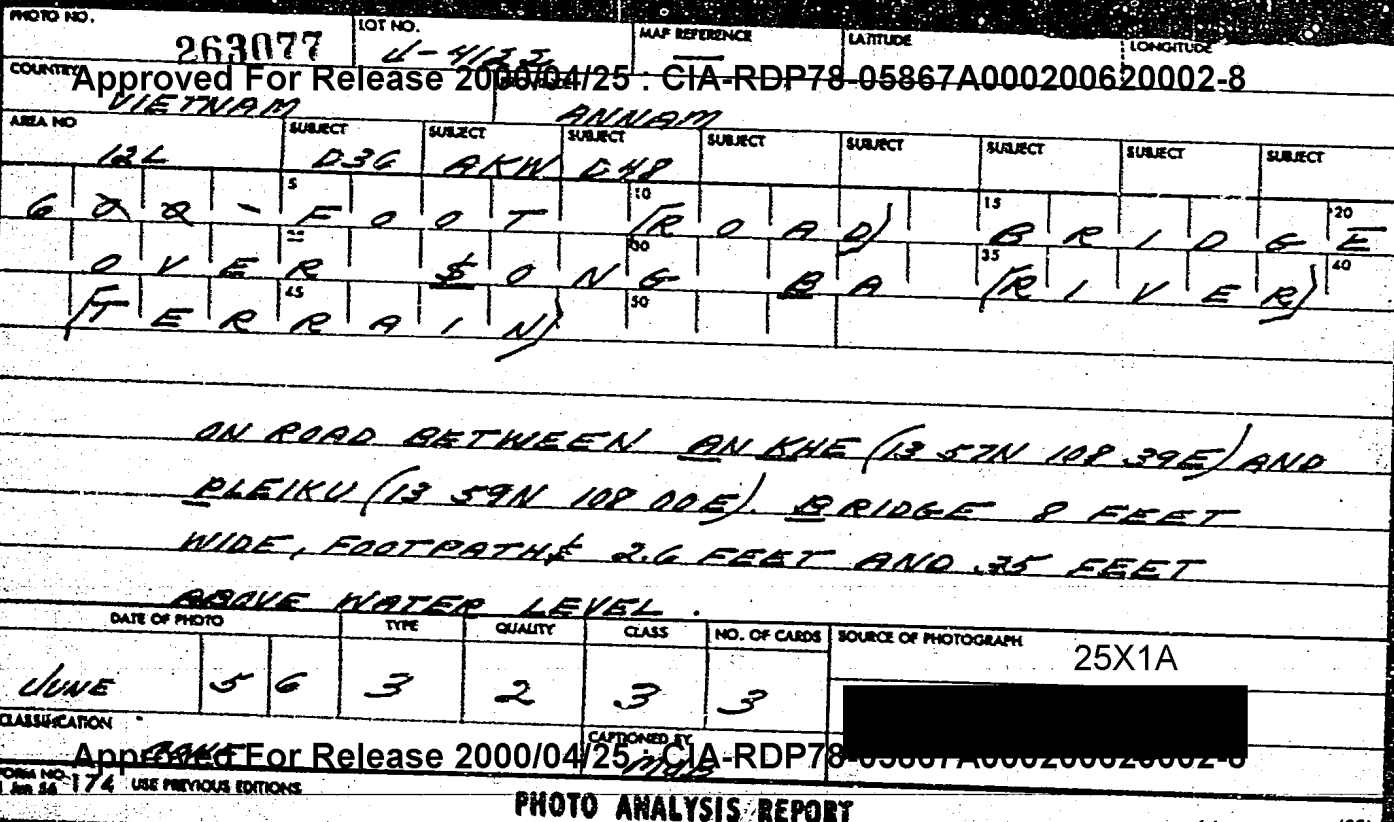 PHOTO NO. LOT NO. MAP REFERENCE LATITUDE LONGITUDE
263077
COUNTRY
Approved For Release 2000/04/25 : CIA-RDP78-05867A000200620002-8
VIETNAM ANNAM
AREA NO SUBJECT SUBJECT SUBJECT SUBJECT SUBJECT SUBJECT SUBJECT SUBJECT
12L D36 AKW D48
5 10 15 20
- FOOT (ROAD) BRIDGE
30 35 40
OVER SONG BA (RIVER)
45 50
(TERRAIN)
ON ROAD BETWEEN AN KHE (13 57N 108 39E) AND
PLEIKU (13 59N 108 00E). BRIDGE 8 FEET
WIDE, FOOTPATHS 2.6 FEET AND FEET
ABOVE WATER LEVEL.
DATE OF PHOTO TYPE QUALITY CLASS NO. OF CARDS SOURCE OF PHOTOGRAPH
25X1A
JUNE 56 3 2 3 3
CLASSIFICATION CAPTIONED BY
Approved For Release 2000/04/25 : CIA-RDP78-05867A000200620002-8
FORM NO. 1 Jan 56 174 USE PREVIOUS EDITIONS
PHOTO ANALYSIS REPORT